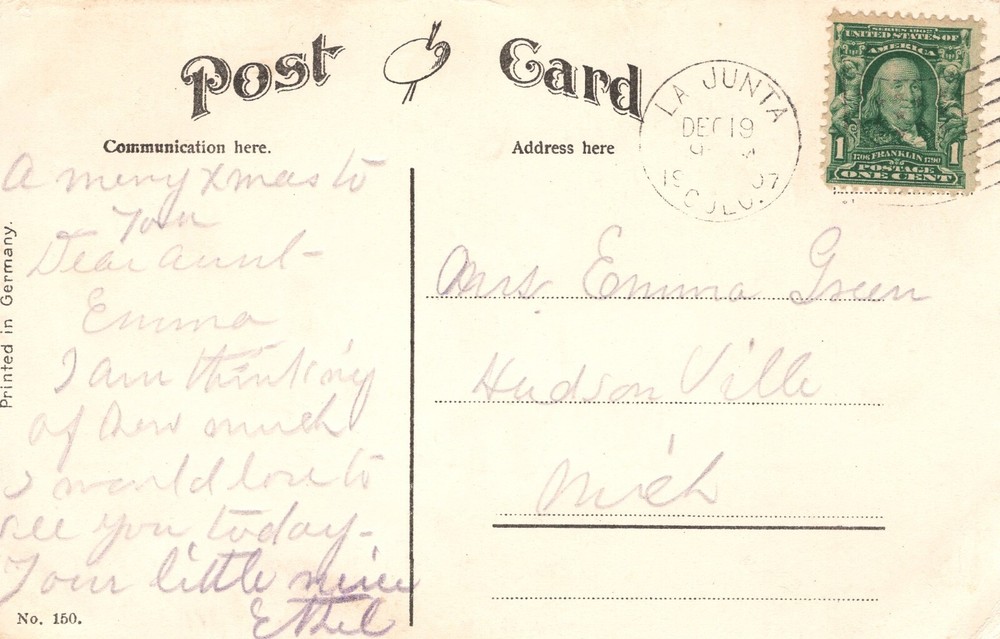 Post Card
Communication here.
Address here
LA JUNTA
DEC 19
9
1907
COLO.
SERIES 1902
UNITED STATES OF
AMERICA
1 1706 FRANKLIN 1790 1
POSTAGE
ONE CENT
A merry xmas to
You
Dear aunt-
Emma
I am thinking
of how much
I would love to
see you today-
Your little niece
Ethel
Mrs Emma Green
Hudson Ville
Mich
Printed in Germany.
No. 150.